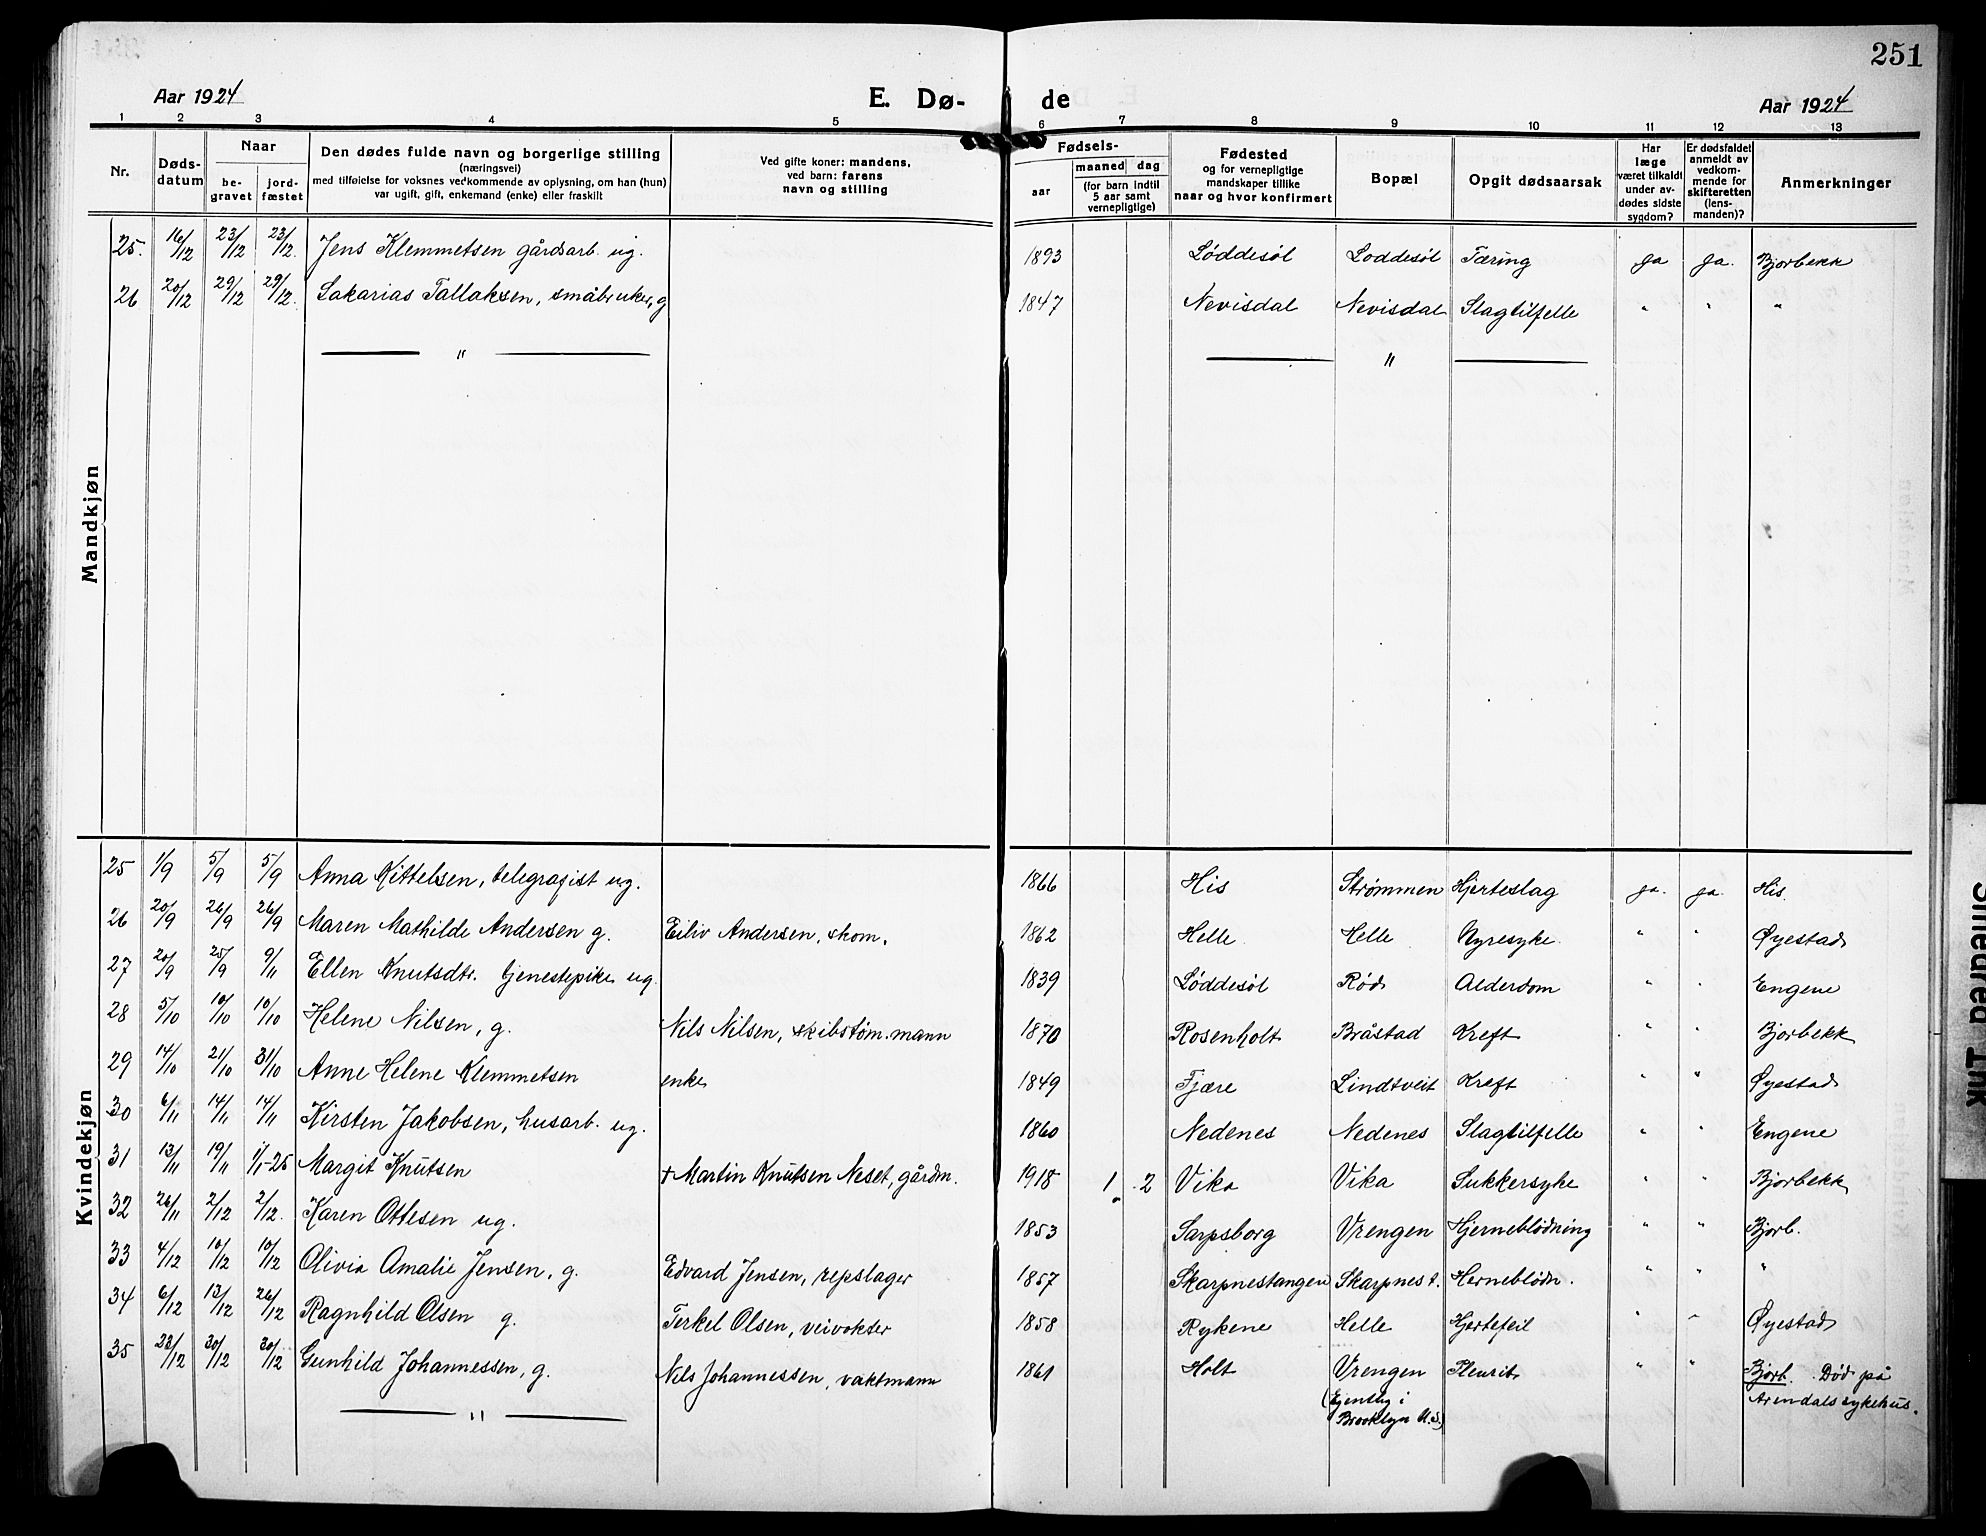 251
Aar 1924
E. Dø-
de
Aar 1924
1 2 3 4 5 6 7 8 9 10 11 12 13
Nr.
Døds-
datum
Naar
be-
gravet
jord-
fæstet
Den dødes fulde navn og borgerlige stilling
(næringsvei)
med tilføielse for voksnes vedkommende av oplysning, om han (hun)
var ugift, gift, enkemand (enke) eller fraskilt
Ved gifte koner: mandens,
ved barn: farens
navn og stilling
Fødsels-
aar
maaned dag
(for barn indtil
5 aar samt
vernepligtige)
Fødested
og for vernepligtige
mandskaper tillike
naar og hvor konfirmert
Bopæl
Opgit dødsaarsak
Har
læge
været tilkaldt
under av-
dødes sidste
sygdom?
Er dødsfaldet
anmeldt av
vedkom-
mende for
skifteretten
(lens-
manden)?
Anmerkninger
Mandkjøn
25. 16/12 23/12 23/12. Jens Klemmetsen gårdsarb. ug. 1893 Løddesøl Loddesøl Tæring ja ja. Bjorbekk
26 20/12 29/12 29/12. Sakarias Tallaksen, småbruker, g 1847 Nevisdal Nevisdal Slagtilfelle " " "
" "
Kvindekjøn
25 1/9 5/9 5/9 Anna Kittelsen, telegrafist ug. 1866 His Strømmen Hjerteslag ja. ja. His.
26 20/9 26/9 26/9 Maren Mathilde Andersen g. Eiliv Andersen, skom. 1862 Helle Helle Nyresyke. " " Øyestad
27 20/9 25/9 9/11 Ellen Knutsdtr. tjenestepike ug. 1839 Løddesøl Rød Alderdom " " Engene
28 5/10 10/10 10/10 Helene Nilsen, g. Nils Nilsen, skibstøm.mann 1870 Rosenholt Bråstad Kreft " " Bjorbekk
29 14/10 21/10 31/10 Anne Helene Klemmetsen enke 1849 Fjære Lindtveit Kreft " " Øyestad
30 6/11 14/11 14/11 Kirsten Jakobsen, husarb. ug. 1860 Nedenes Nedenes Slagtilfelle " " Engene
31 13/11 19/11 1/1-25 Margit Knutsen + Martin Knutsen Neset, gårdm. 1918 1 2 Vika Vika Sukkersyke " " Bjorbekk
32 26/11 2/12 2/12. Karen Ottesen ug. 1853 Sarpsborg Vrengen Hjerneblødning " " Bjorb.
33 4/12 10/12 10/12 Olivia Amalie Jensen, g. Edvard Jensen, repslager 1857 Skarpnestangen Skarpnest. Herneblødn. " " "
34 6/12 13/12 26/12 Ragnhild Olsen g. Terkel Olsen, veivokter 1858 Rykene Helle Hjertefeil " " Øyestad
35 23/12 30/12 30/12 Gunhild Johannessen, g. Nils Johannessen, vaktmann 1861 Holt Vrengen Pleurit " " Bjorb. Død på
(Ejentlig i Arendals sykehus.
Brooklyn U.S.)
"